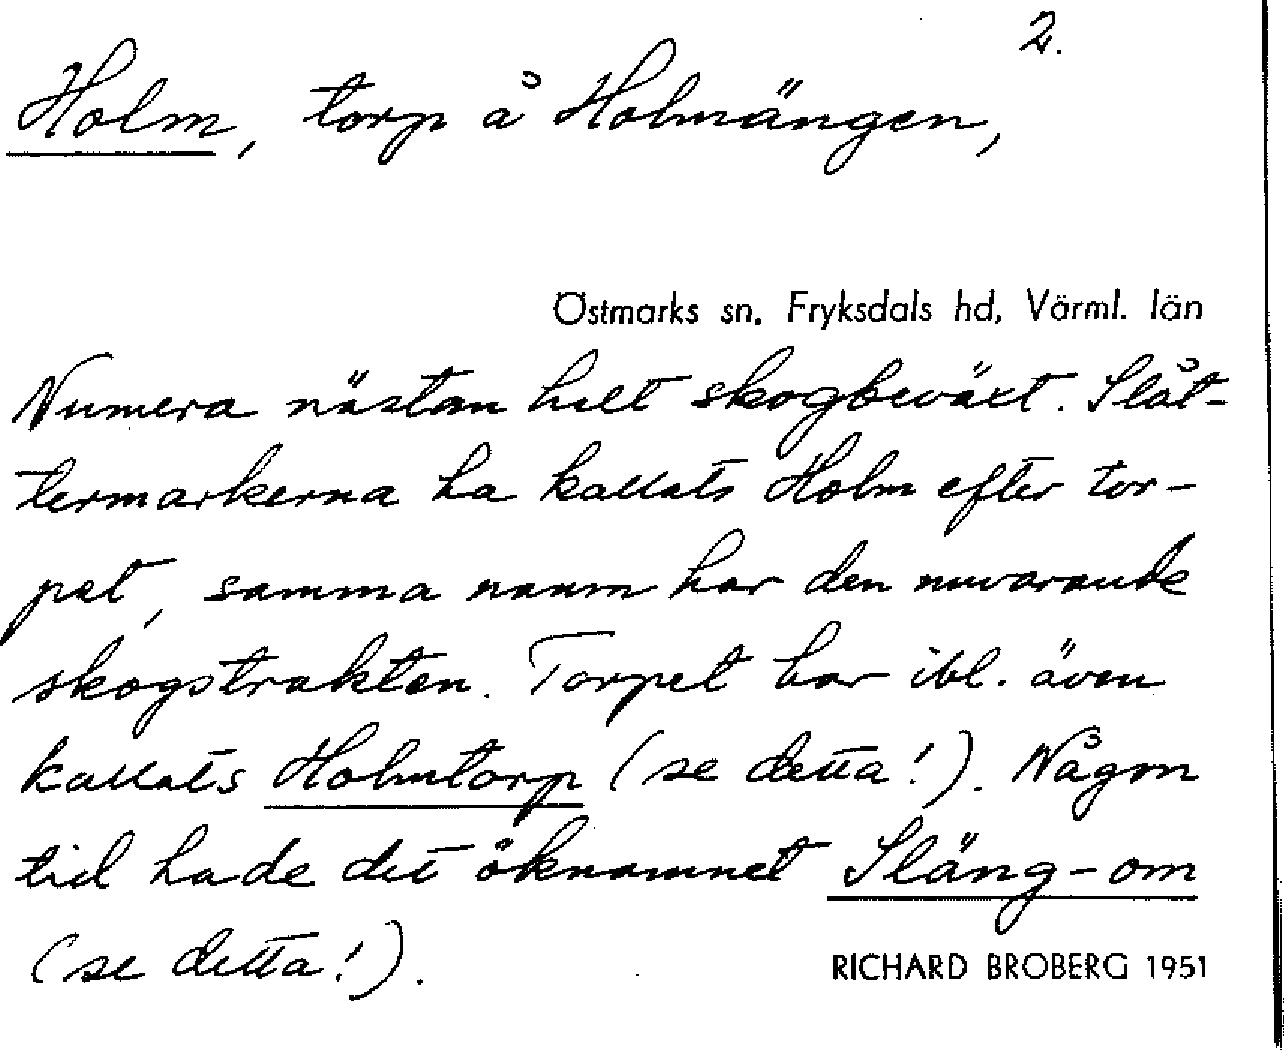 2.
Holm, torp å Holmängen,
Östmarks sn. Fryksdals hd, Värml. län
Numera nästan helt skogbeväxt. Slåt-
termarkerna ha kallats Holm efter tor-
pet, samma namn har den nuvarande
skogstrakten. Torpet har ibl. även
kallats Holmtorp (se detta!). Någon
tid hade det öknamnet Släng-om
(se detta!).
RICHARD BROBERG 1951